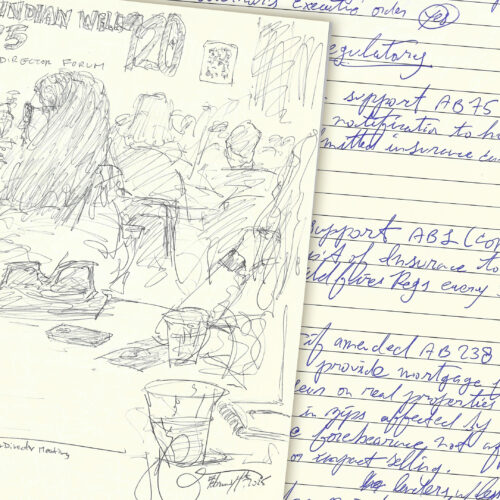 INDIAN WELLS
25
20
DIRECTOR FORUM
Director Meeting
2025
executive order (Yes)
egulatory
support AB75
notification to ho
mitted insurance
support AB1 (co
pt of Insurance to
ldfires Regs every
if amended AB238
provide mortgage f
on real properties
in zips affected by
forbearance, not
or impact selling.
lenders,